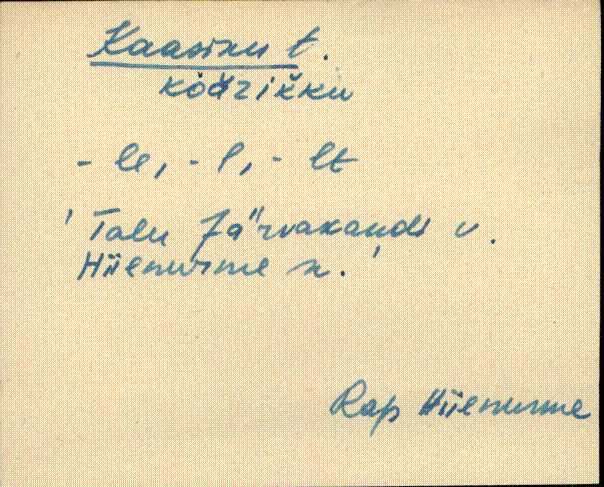 Kaasiku t.
koäzikku
- le, - l, - lt
'Talu Järvakandi v.
Hiienurme n.'
Rap Hiienurme